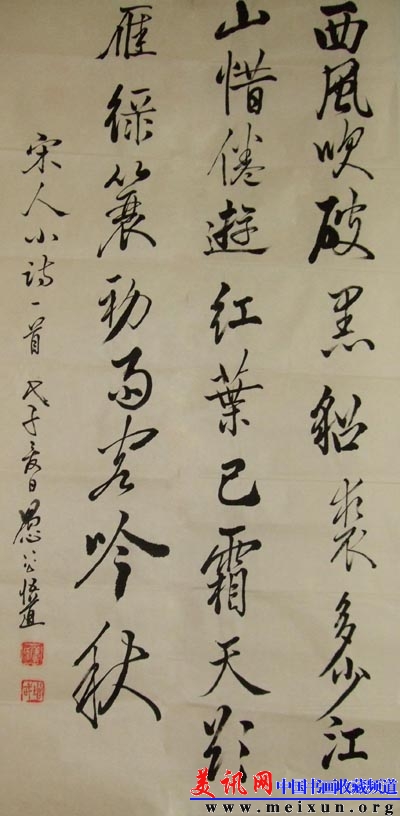 西風吹破黑貂裘多少江
山惜倦遊紅葉已霜天欲
雁綠蓑初雨客吟秋
宋人小詩一首 戊子 日 愚公
美讯网 中国书画收藏频道
www.meixun.org